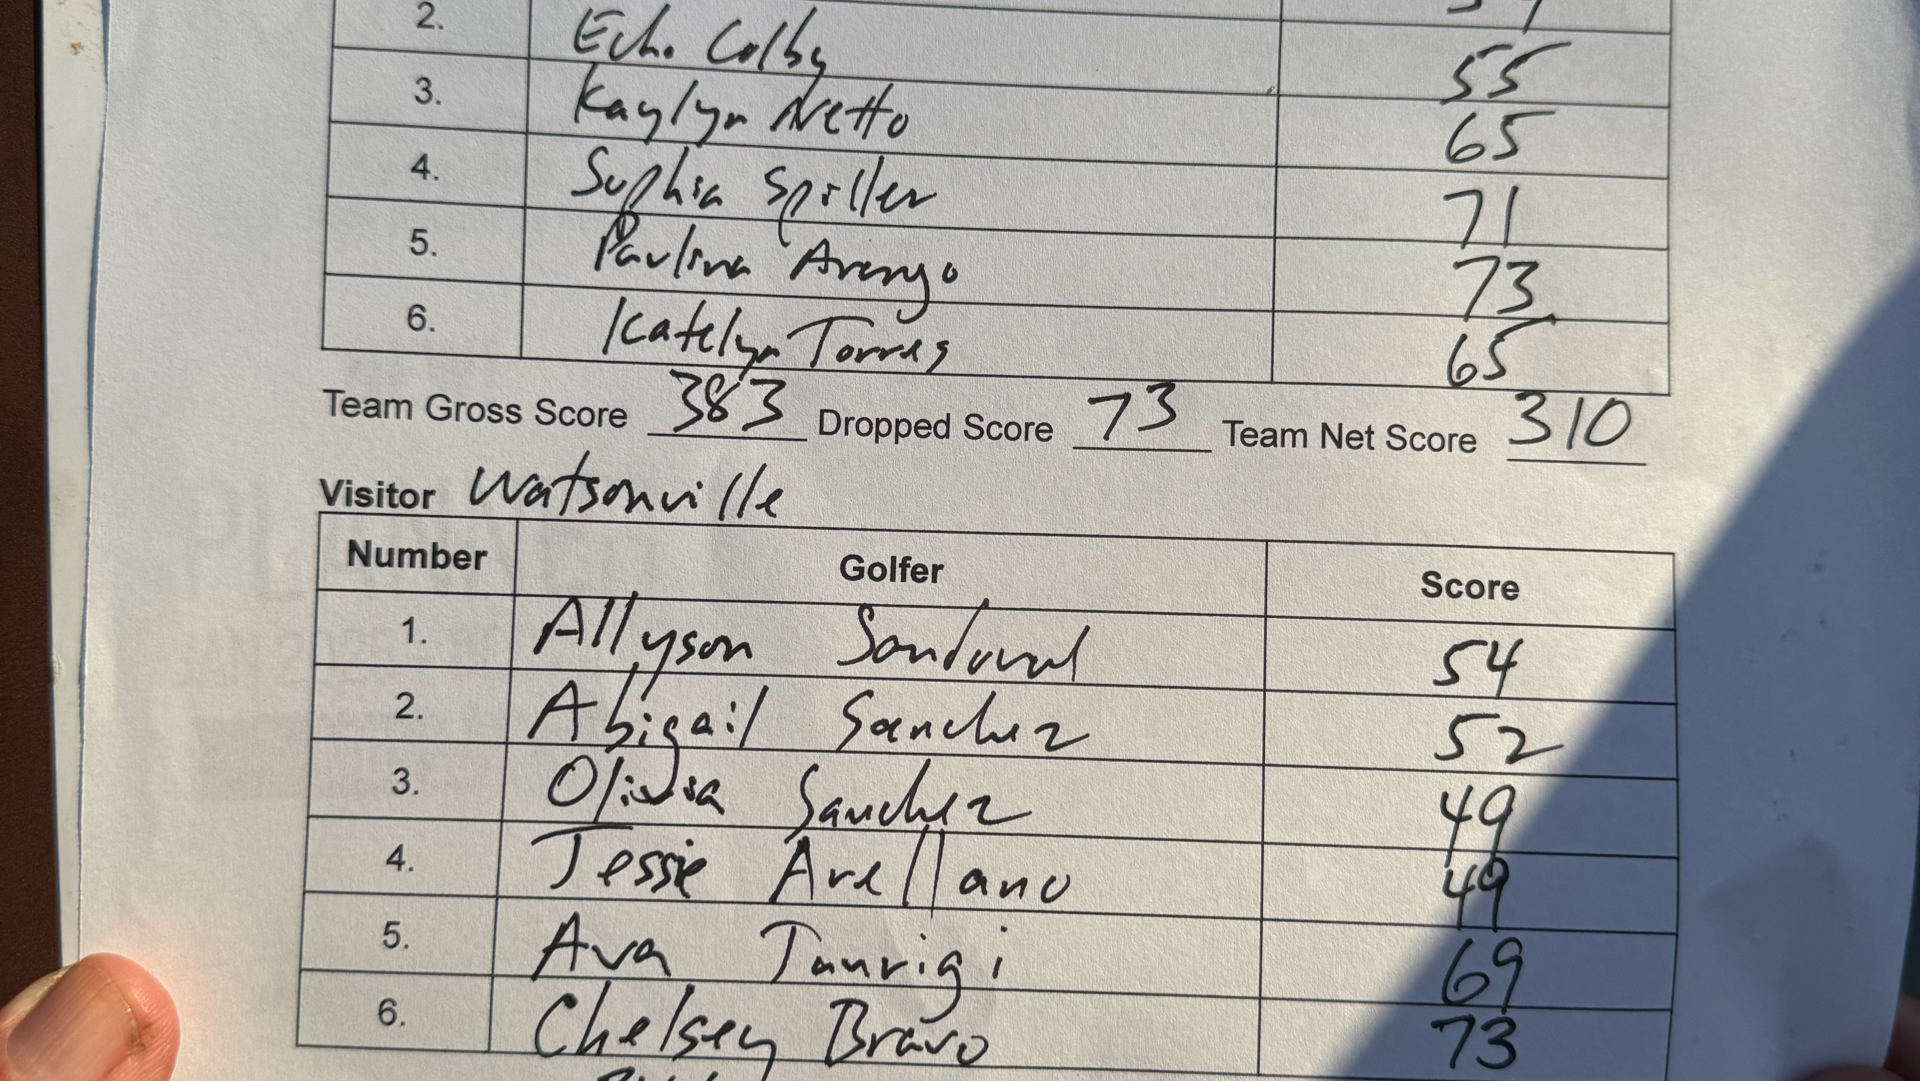 2. Echo Colby 55
3. Kaylyn Netto 65
4. Sophia Spiller 71
5. Paulina Arango 73
6. Katelyn Torres 65
Team Gross Score 383 Dropped Score 73 Team Net Score 310
Visitor Watsonville
Number Golfer Score
1. Allyson Sandoval 54
2. Abigail Sanchez 52
3. Olivia Sanchez 49
4. Jessie Arellano 49
5. Ava 69
6. Chelsey Bravo 73